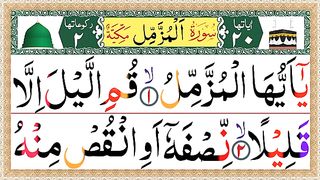 رکوعاتها ٢ سُورَةُ الْمُزَّمِّل مَكِّيَّة اٰیاتها ٢٠
يٰٓاَيُّهَا الْمُزَّمِّلُ ۙ﴿۱﴾ قُمِ الَّيْلَ اِلَّا
قَلِيْلًا ۙ﴿۲﴾ نِّصْفَهٗٓ اَوِ انْقُصْ مِنْهُ